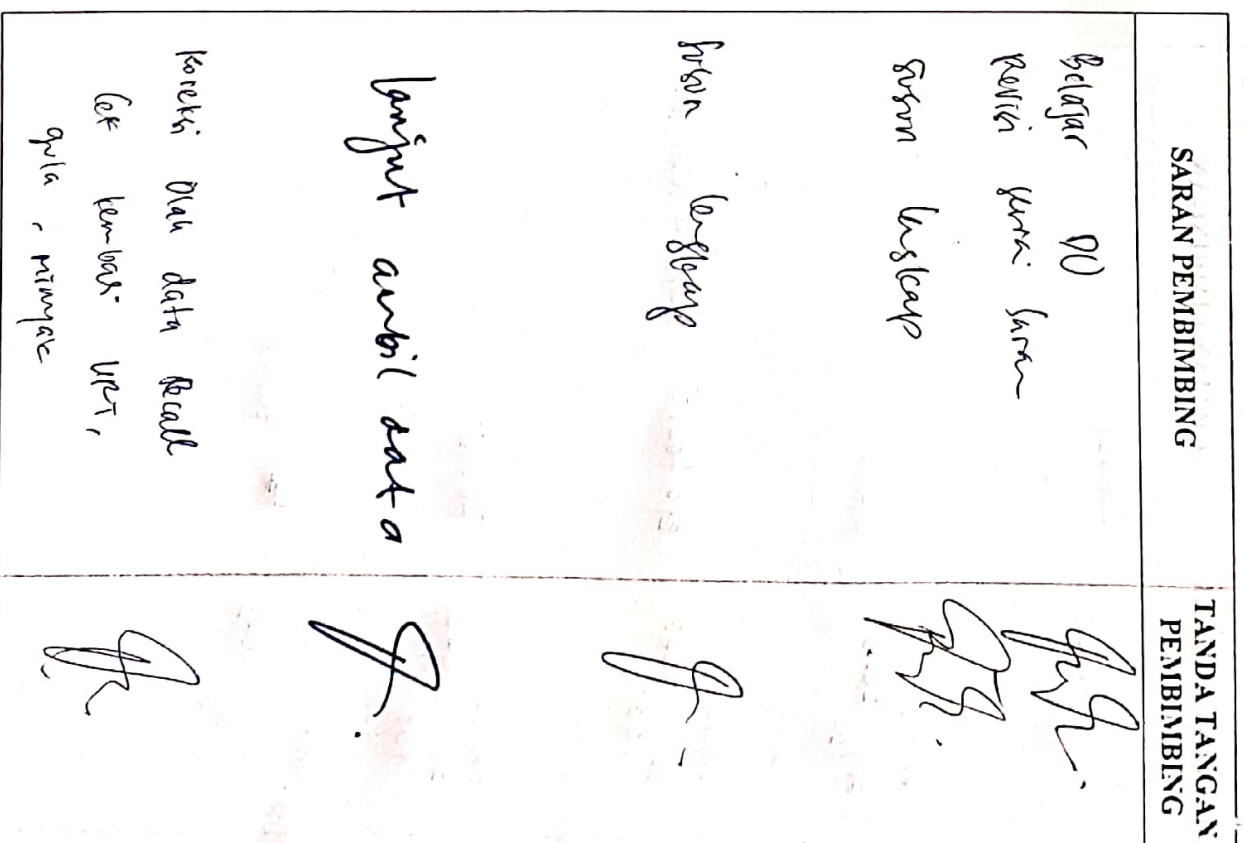 SARAN PEMBIMBING
TANDA TANGAN
PEMBIMBING
Belajar DO
Revisi sesuai saran
susun lengkap
susun lengkap
lanjut ambil data
Koreksi Olah data Recall
Cek kembali URT,
gula, minyak